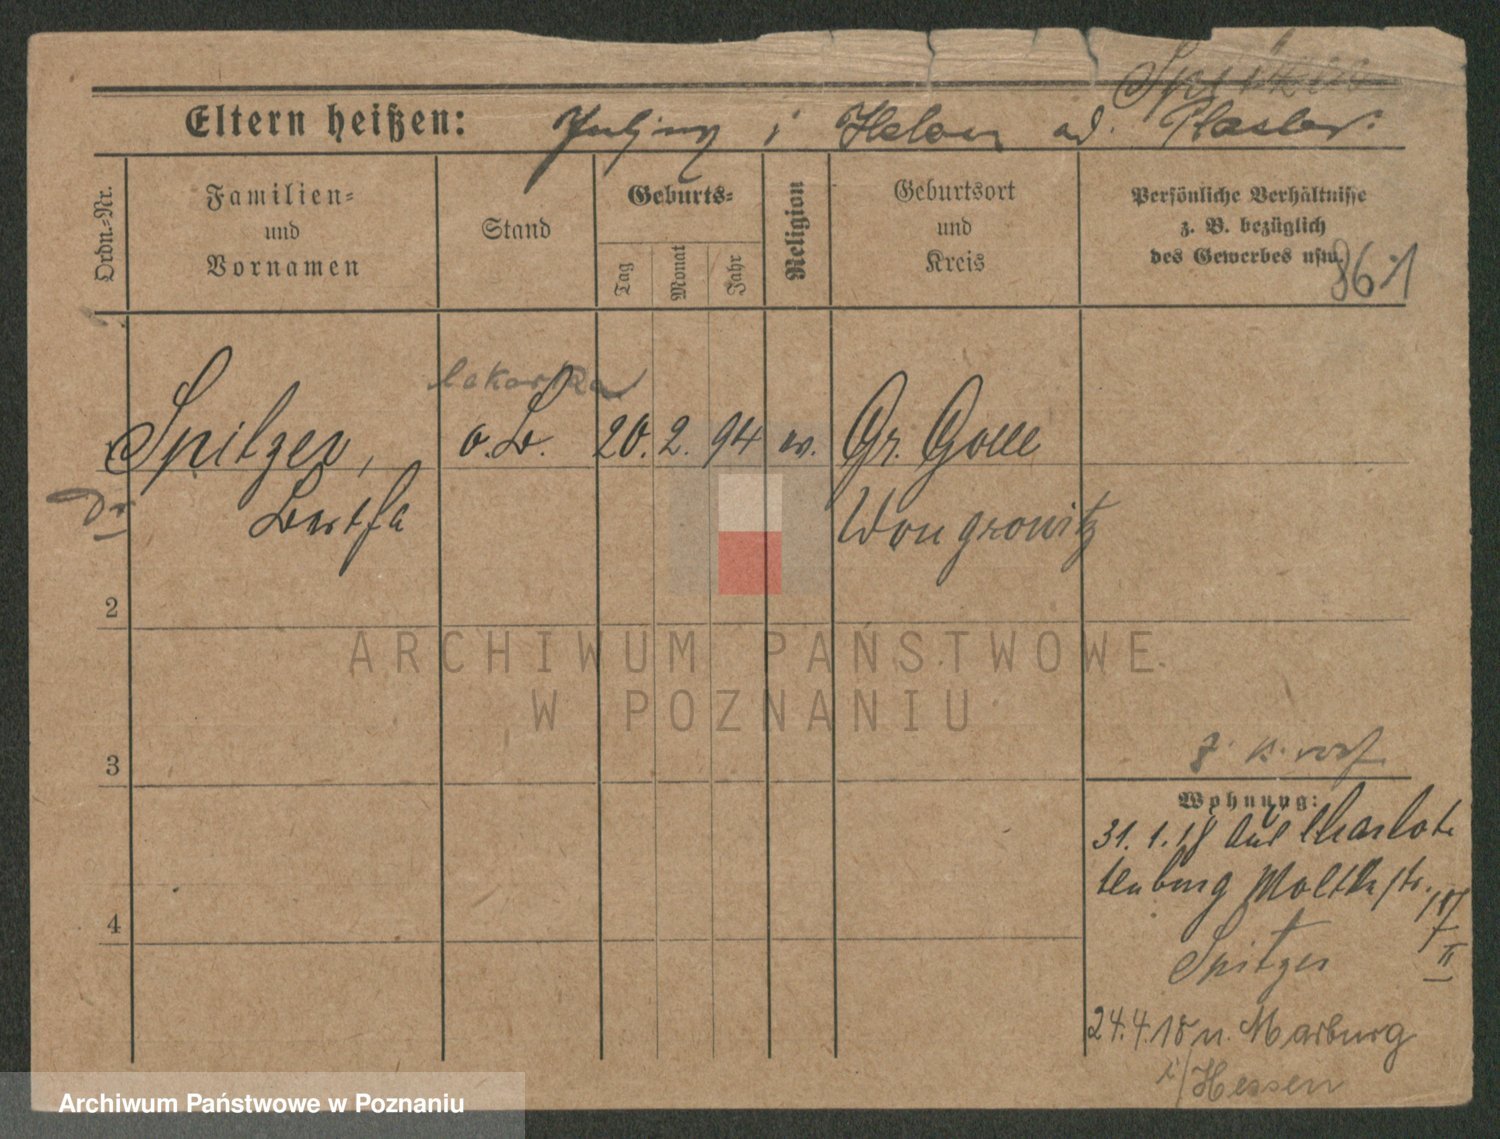 Eltern heißen: i Helena
Ordn.-Nr.
Familien-
und
Vornamen
Stand
Geburts-
Tag
Monat
Jahr
Religion
Geburtsort
und
Kreis
Persönliche Verhältnisse
z. B. bezüglich
des Gewerbes usw.
lekarka
Spitzer, o. B. 20. 2. 94 Gr. Golle
Dr Bertha Wongrowitz
2
3
Wohnung:
31. 1. 18 aus Charlot
tenburg Moltkestr.
Spitzer
II
4
24. 4. 18 n. Marburg
i/Hessen
ARCHIWUM PAŃSTWOWE
W POZNANIU
Archiwum Państwowe w Poznaniu